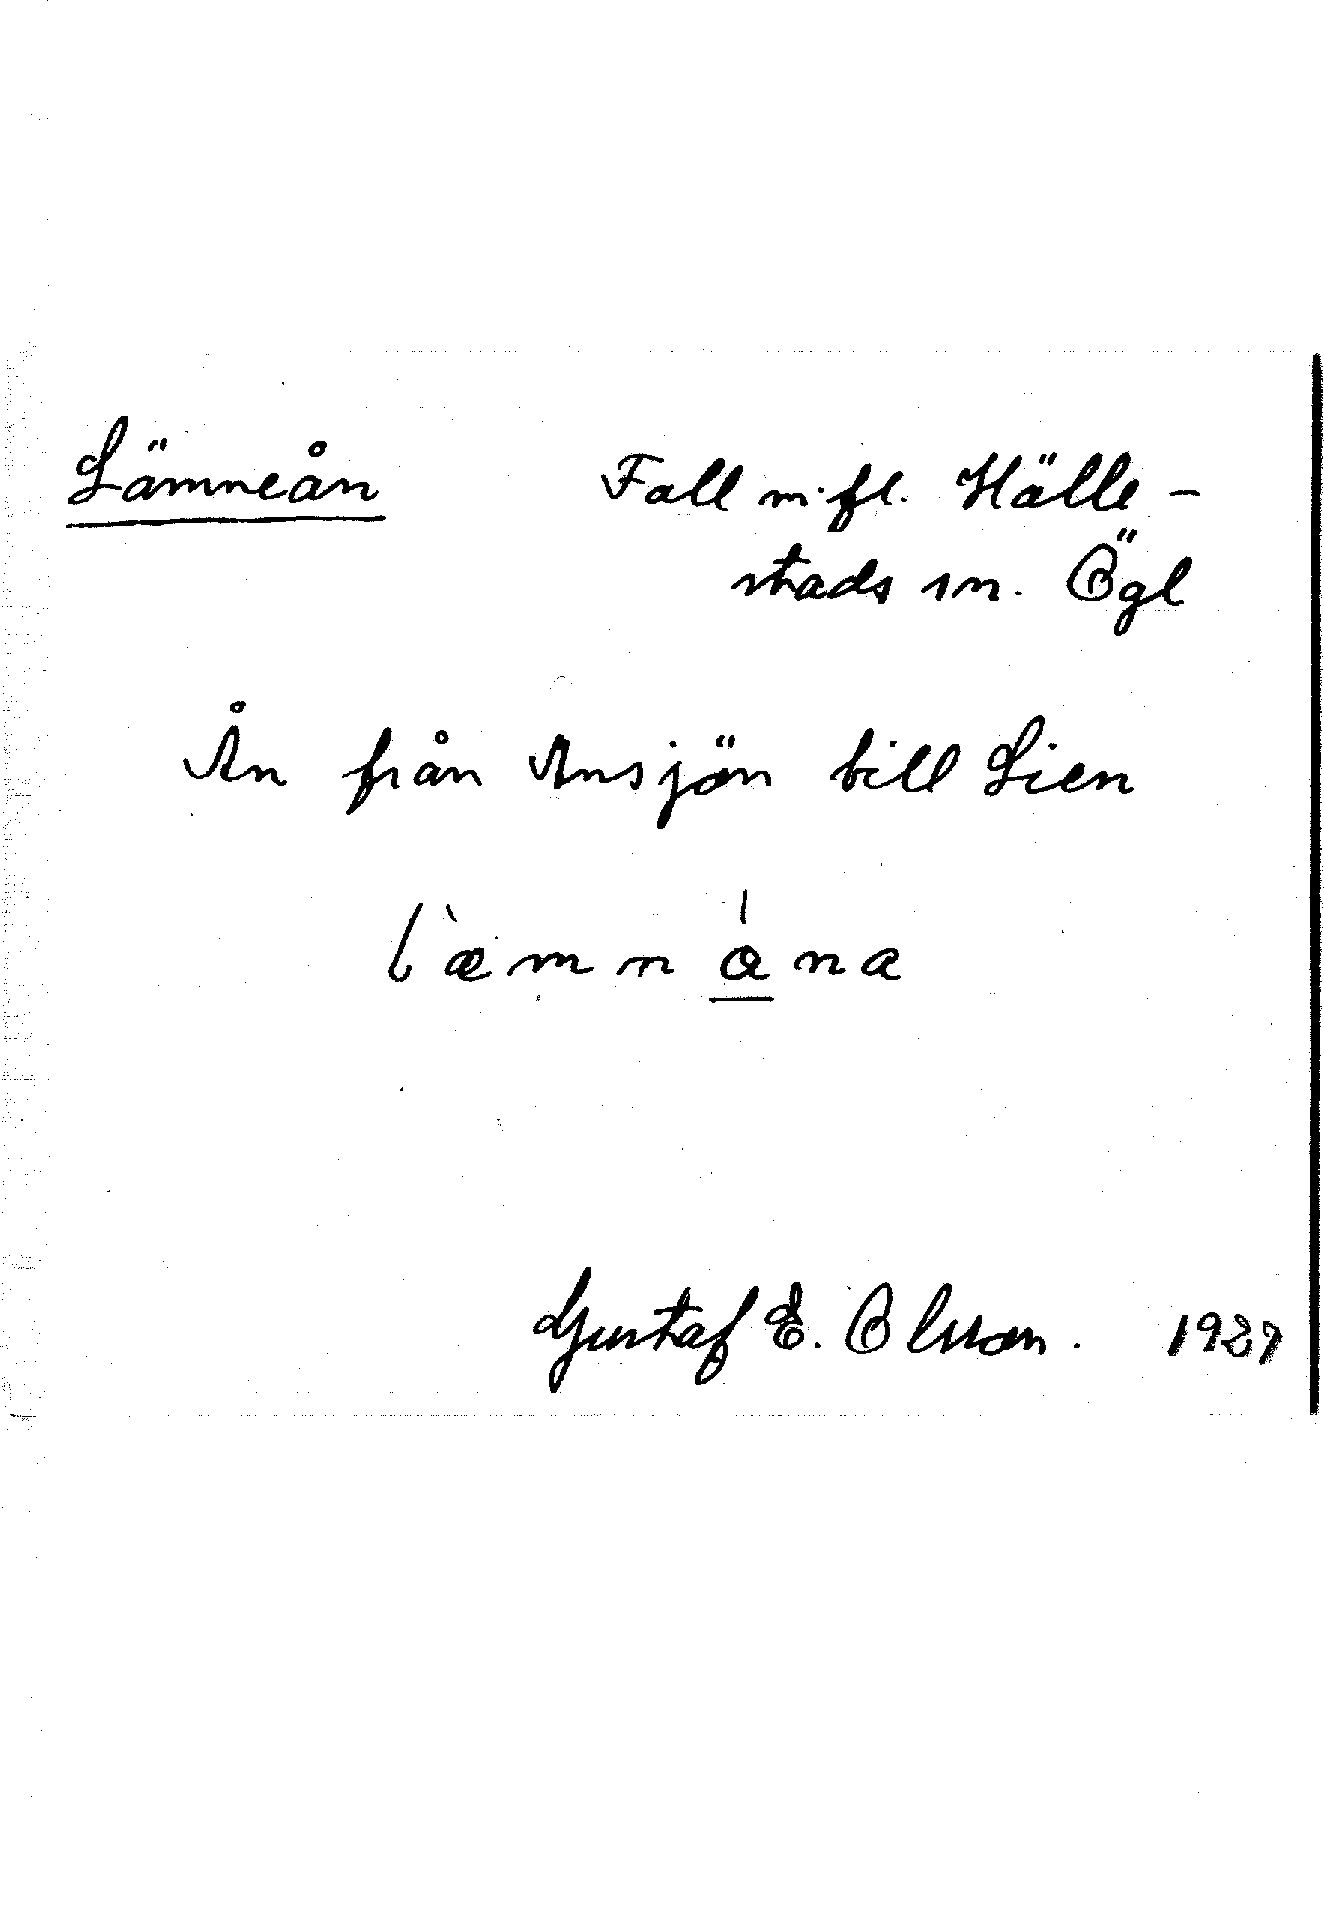 Lämneån Fall m.fl. Hälle-
stads sn. Ögl
Ån från Ansjön till Lien
l`æmnåna
Gustaf E. Olsson. 1929